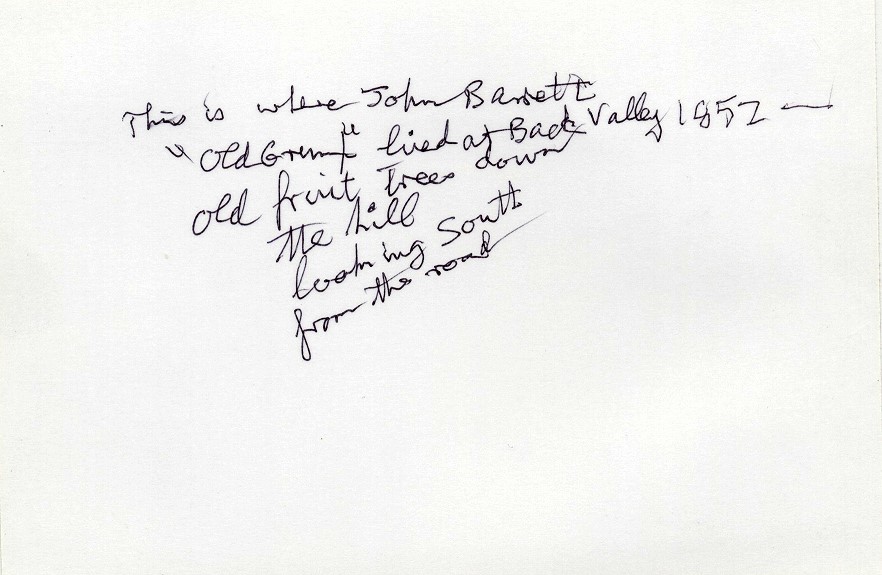 This is where John Barrett
"Old Grump" lived at Back Valley 1852 —
old fruit Trees down
the hill
looking South
from the road